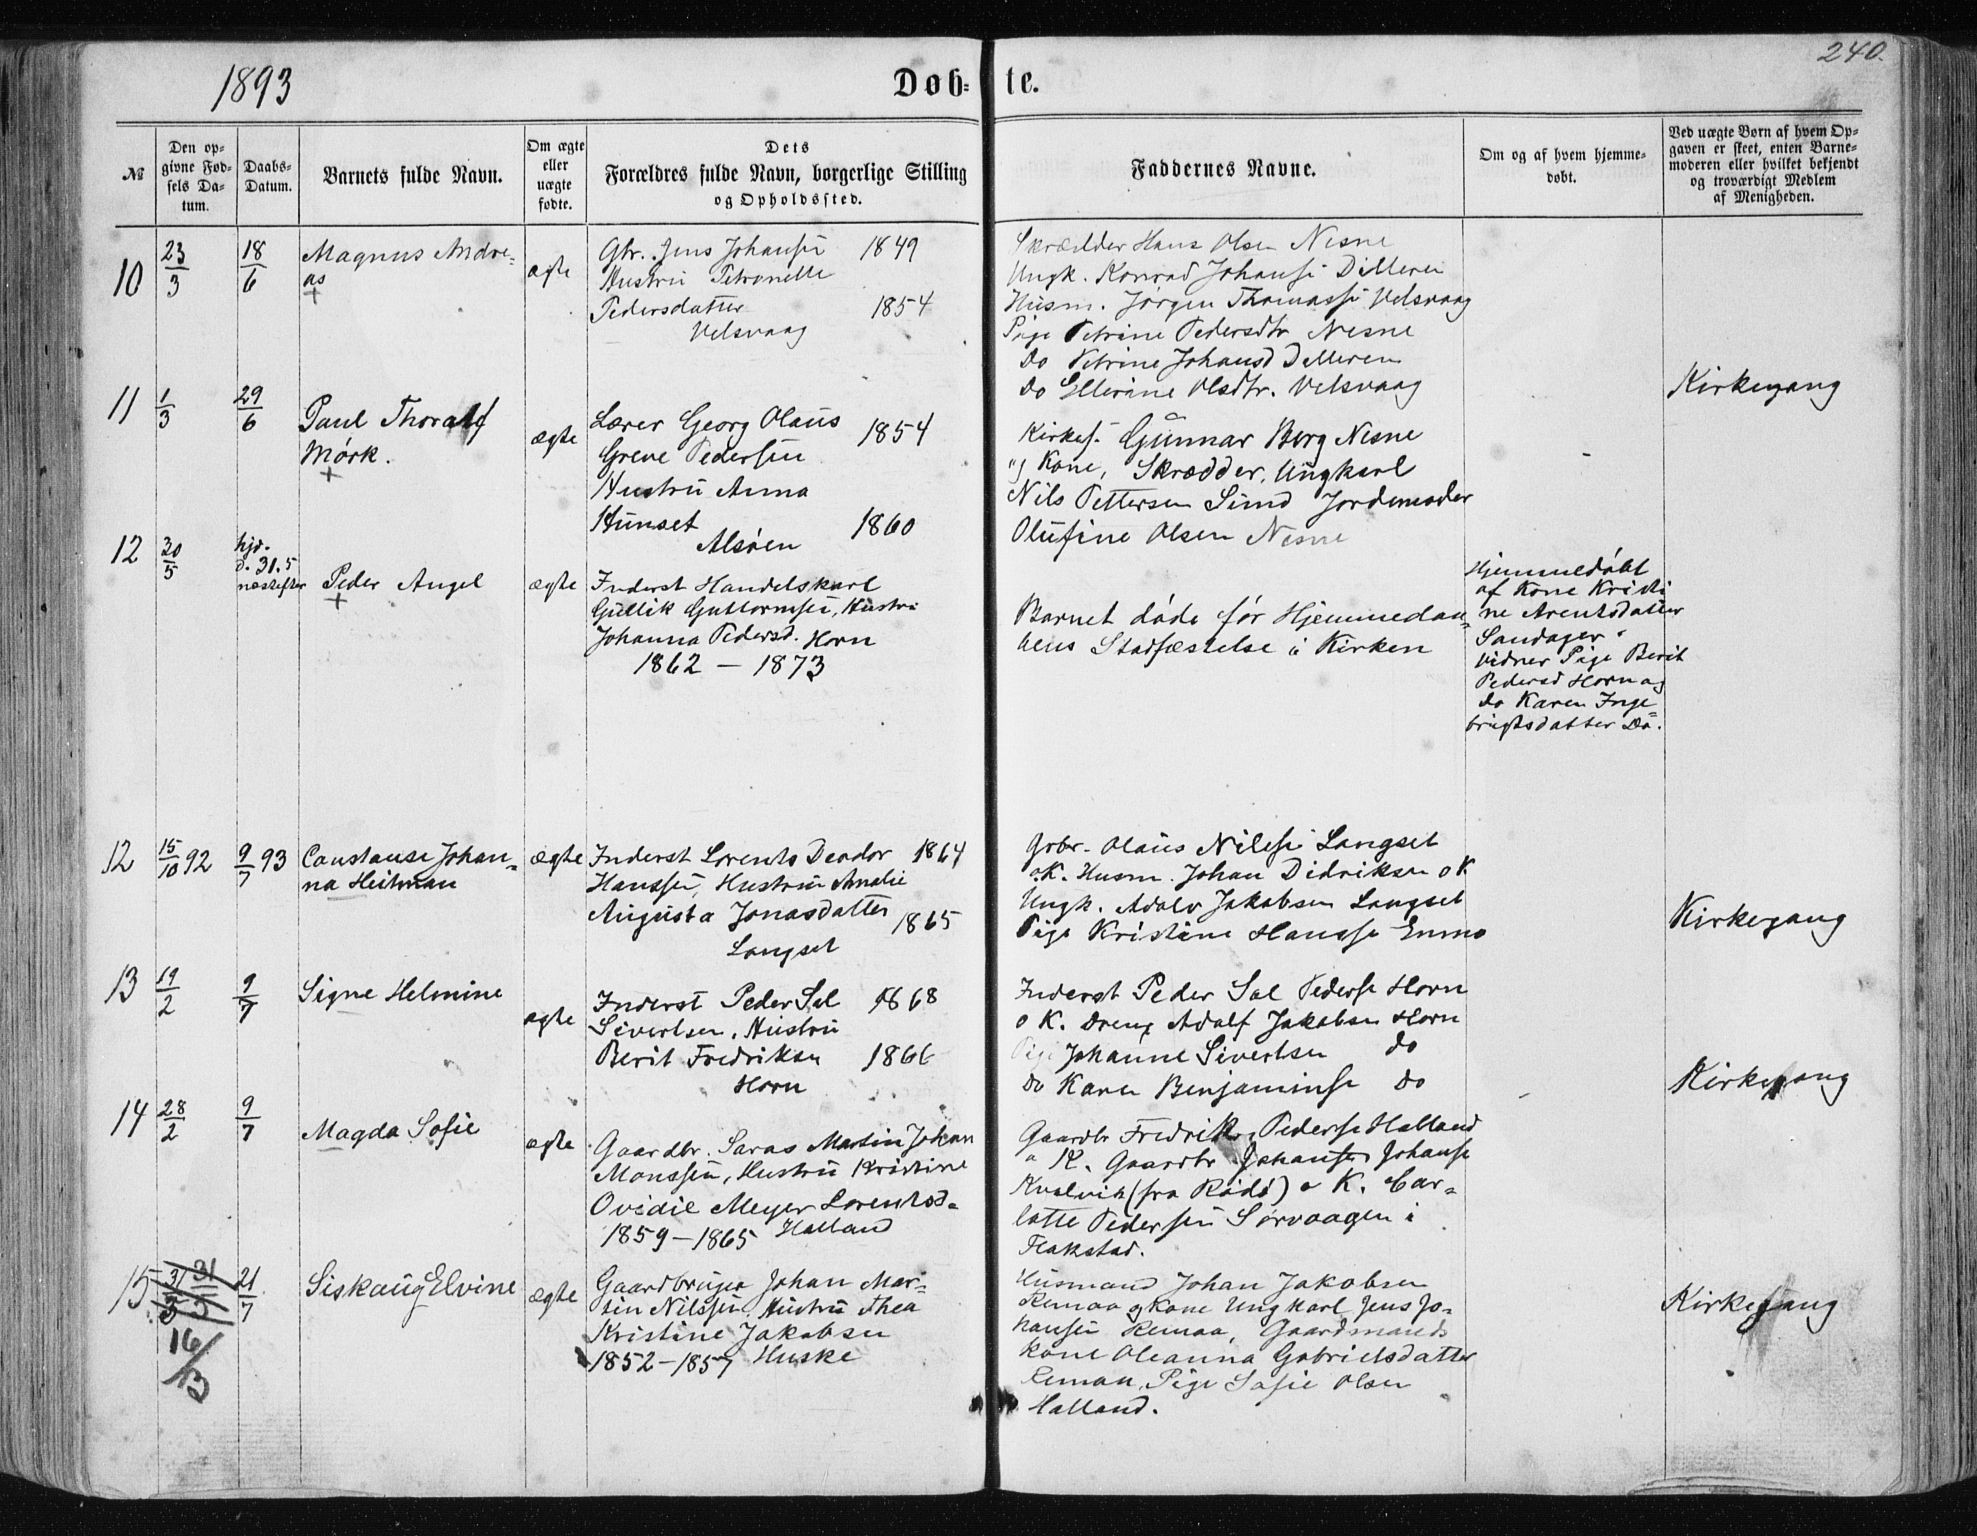 240.
1893
Døb=
te.
№
Den op-
givne Fød-
sels Da-
tum.
Daabs-
Datum.
Barnets fulde Navn.
Om ægte
eller
uægte
fødte.
Dets
Forældres fulde Navn, borgerlige Stilling
og Opholdssted.
Faddernes Navne.
Om og af hvem hjemme-
døbt.
Ved uægte Børn af hvem Op-
gaven er skeet, enten Barne-
moderen eller hvilket bekjendt
og troværdigt Medlem
af Menigheden.
10
23/3
18/6
Magnus Andre=
as
+
ægte
Gbr. Jens Johansen 1849
Hustru Petronelle
Pedersdatter 1854
Velsvaag
Skrædder Hans Olsen Nesne
Ungk. Konrad Johansen
Husm. Jørgen Thomassen Velsvaag
Pige Petrine Pedersdtr Nesne
Do Petrine Johansd
Do Ellerine Olsdtr. Velsvaag
11
1/3
29/6
Paul Thoralf
Mørk.
+
ægte
Lærer Georg Olaus 1854
Greve Pedersen
Hustru Anna
Hunset 1860
Alsøen
Kirkes. Gunnar Berg Nesne
og Kone, Skrædder, Ungkarl
Nils Pettersen Sund Jordemoder
Olufine Olsen Nesne
Kirkegang
12
30/5
hjd.
d. 31.5
næstefter
Peder Angel
+
ægte
Inderst Handelskarl
Gullik Guttormsen, Hustru
Johanna Pedersd. Horn
1862 – 1873
Barnet døde før Hjemmedaa=
bens Stadfæstelse i Kirken
Hjemmedøbt
af Kone Kristi
ne Arentsdatter
Sandager
vidner Pige Berit
Pedersd Horn og
do Karen Inge=
brigtsdatter Do.
12
15/10 92
9/7 93
Constanse Johan=
na Heitman
ægte
Inderst Lorents Deodor 1864
Hanssen, Hustru Amalie
Augusta Jonasdatter 1865
Langset
Grbr. Olaus Nilsen Langset
o K. Husm. Johan Didriksen o K
Ungk. Adolv Jakobsen Langset
Pige Kristine Hansse Enmo
Kirkegang
13
19/2
9/7
Signe Helmine
ægte
Inderst Peder Sal 1868
Sivertsen, Hustru
Berit Fredriksen 1866
Horn
Inderst Peder Sal Pederse Horn
o K. Dreng Adolf Jakobsen Horn
Pige Johanne Sivertsen do
do Karen Benjaminse do
Kirkegang
14
28/2
9/7
Magda Sofie
ægte
Gaardbr. Saras Martin Johan
Monssen, Hustru Kristine
Ovidie Meyer Lorentsd.
1859 – 1865 Halland
Gaardbr Fredrik Pederse Halland
o K. Gaardbr Johansen Johanse
Kvalvik (fra Rødø) o K. Car=
lotte Pedersen Sørvaagen i
Flakstad.
15
31/5
16/3
21/7
Siskaug Elvine
ægte
Gaardbruger Johan Mar=
tin Nilssen, Hustru Thea
Kristine Jakobsen
1852 – 1857 Huske
Husmand Johan Jakobsen
Remaa og Kone Ungkarl Jens Jo=
hansen Remaa, Gaardmands
kone Oleanna Gabrielsdatter
Remaa, Pige Sofie Olsen
Halland.
Kirkegang